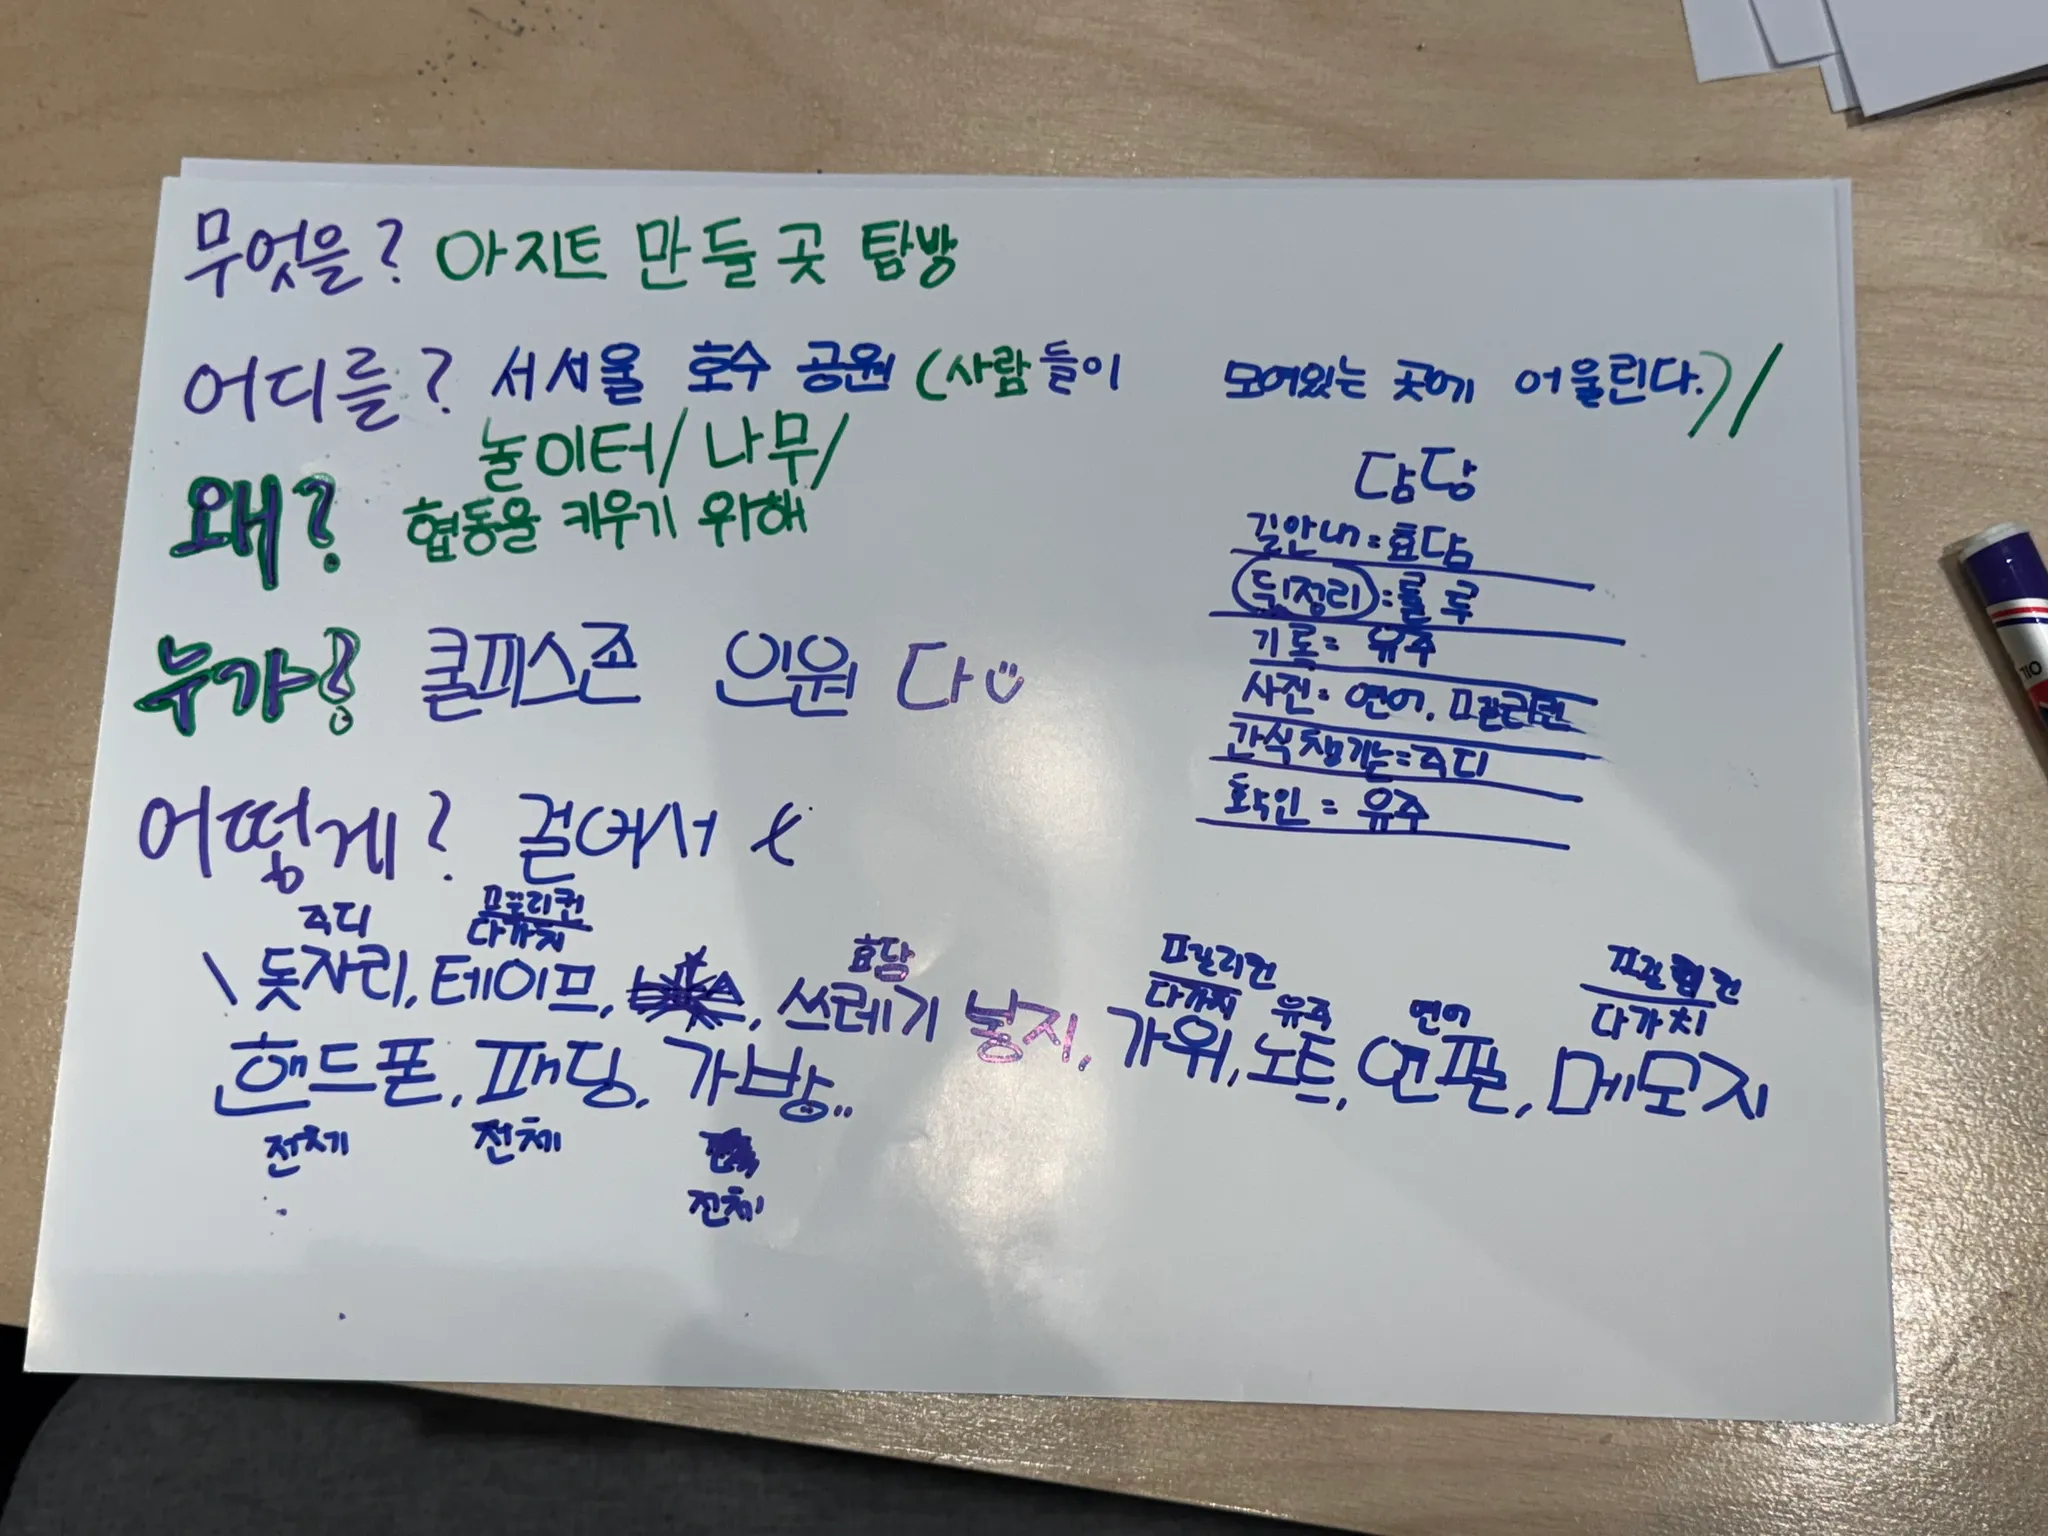 무엇을? 아지트 만들 곳 탐방
어디를? 서서울 호수 공원 (사람들이 모여있는 곳에 어울린다.)/
놀이터/ 나무/
왜? 협동을 키우기 위해
누가? 쿨피스존 인원 다
어떻게? 걸어서
담당
길안내=효담
뒤정리=룰루
기록= 유주
사진= 연어.
간식챙기는=주디
확인= 유주
주디
다가치
효담
다가치 유주
연어
다가치
돗자리, 테이프, 쓰레기 봉지, 가위, 노트, 연필, 메모지
핸드폰, 패딩, 가방..
전체 전체
전체